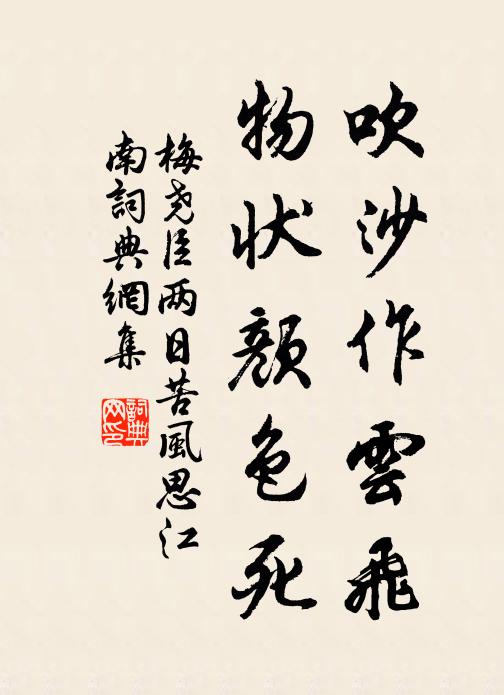 吹沙作雲飛
物状顏色死
梅尧臣两日苦風思江
南詞典網集
詞典
网印